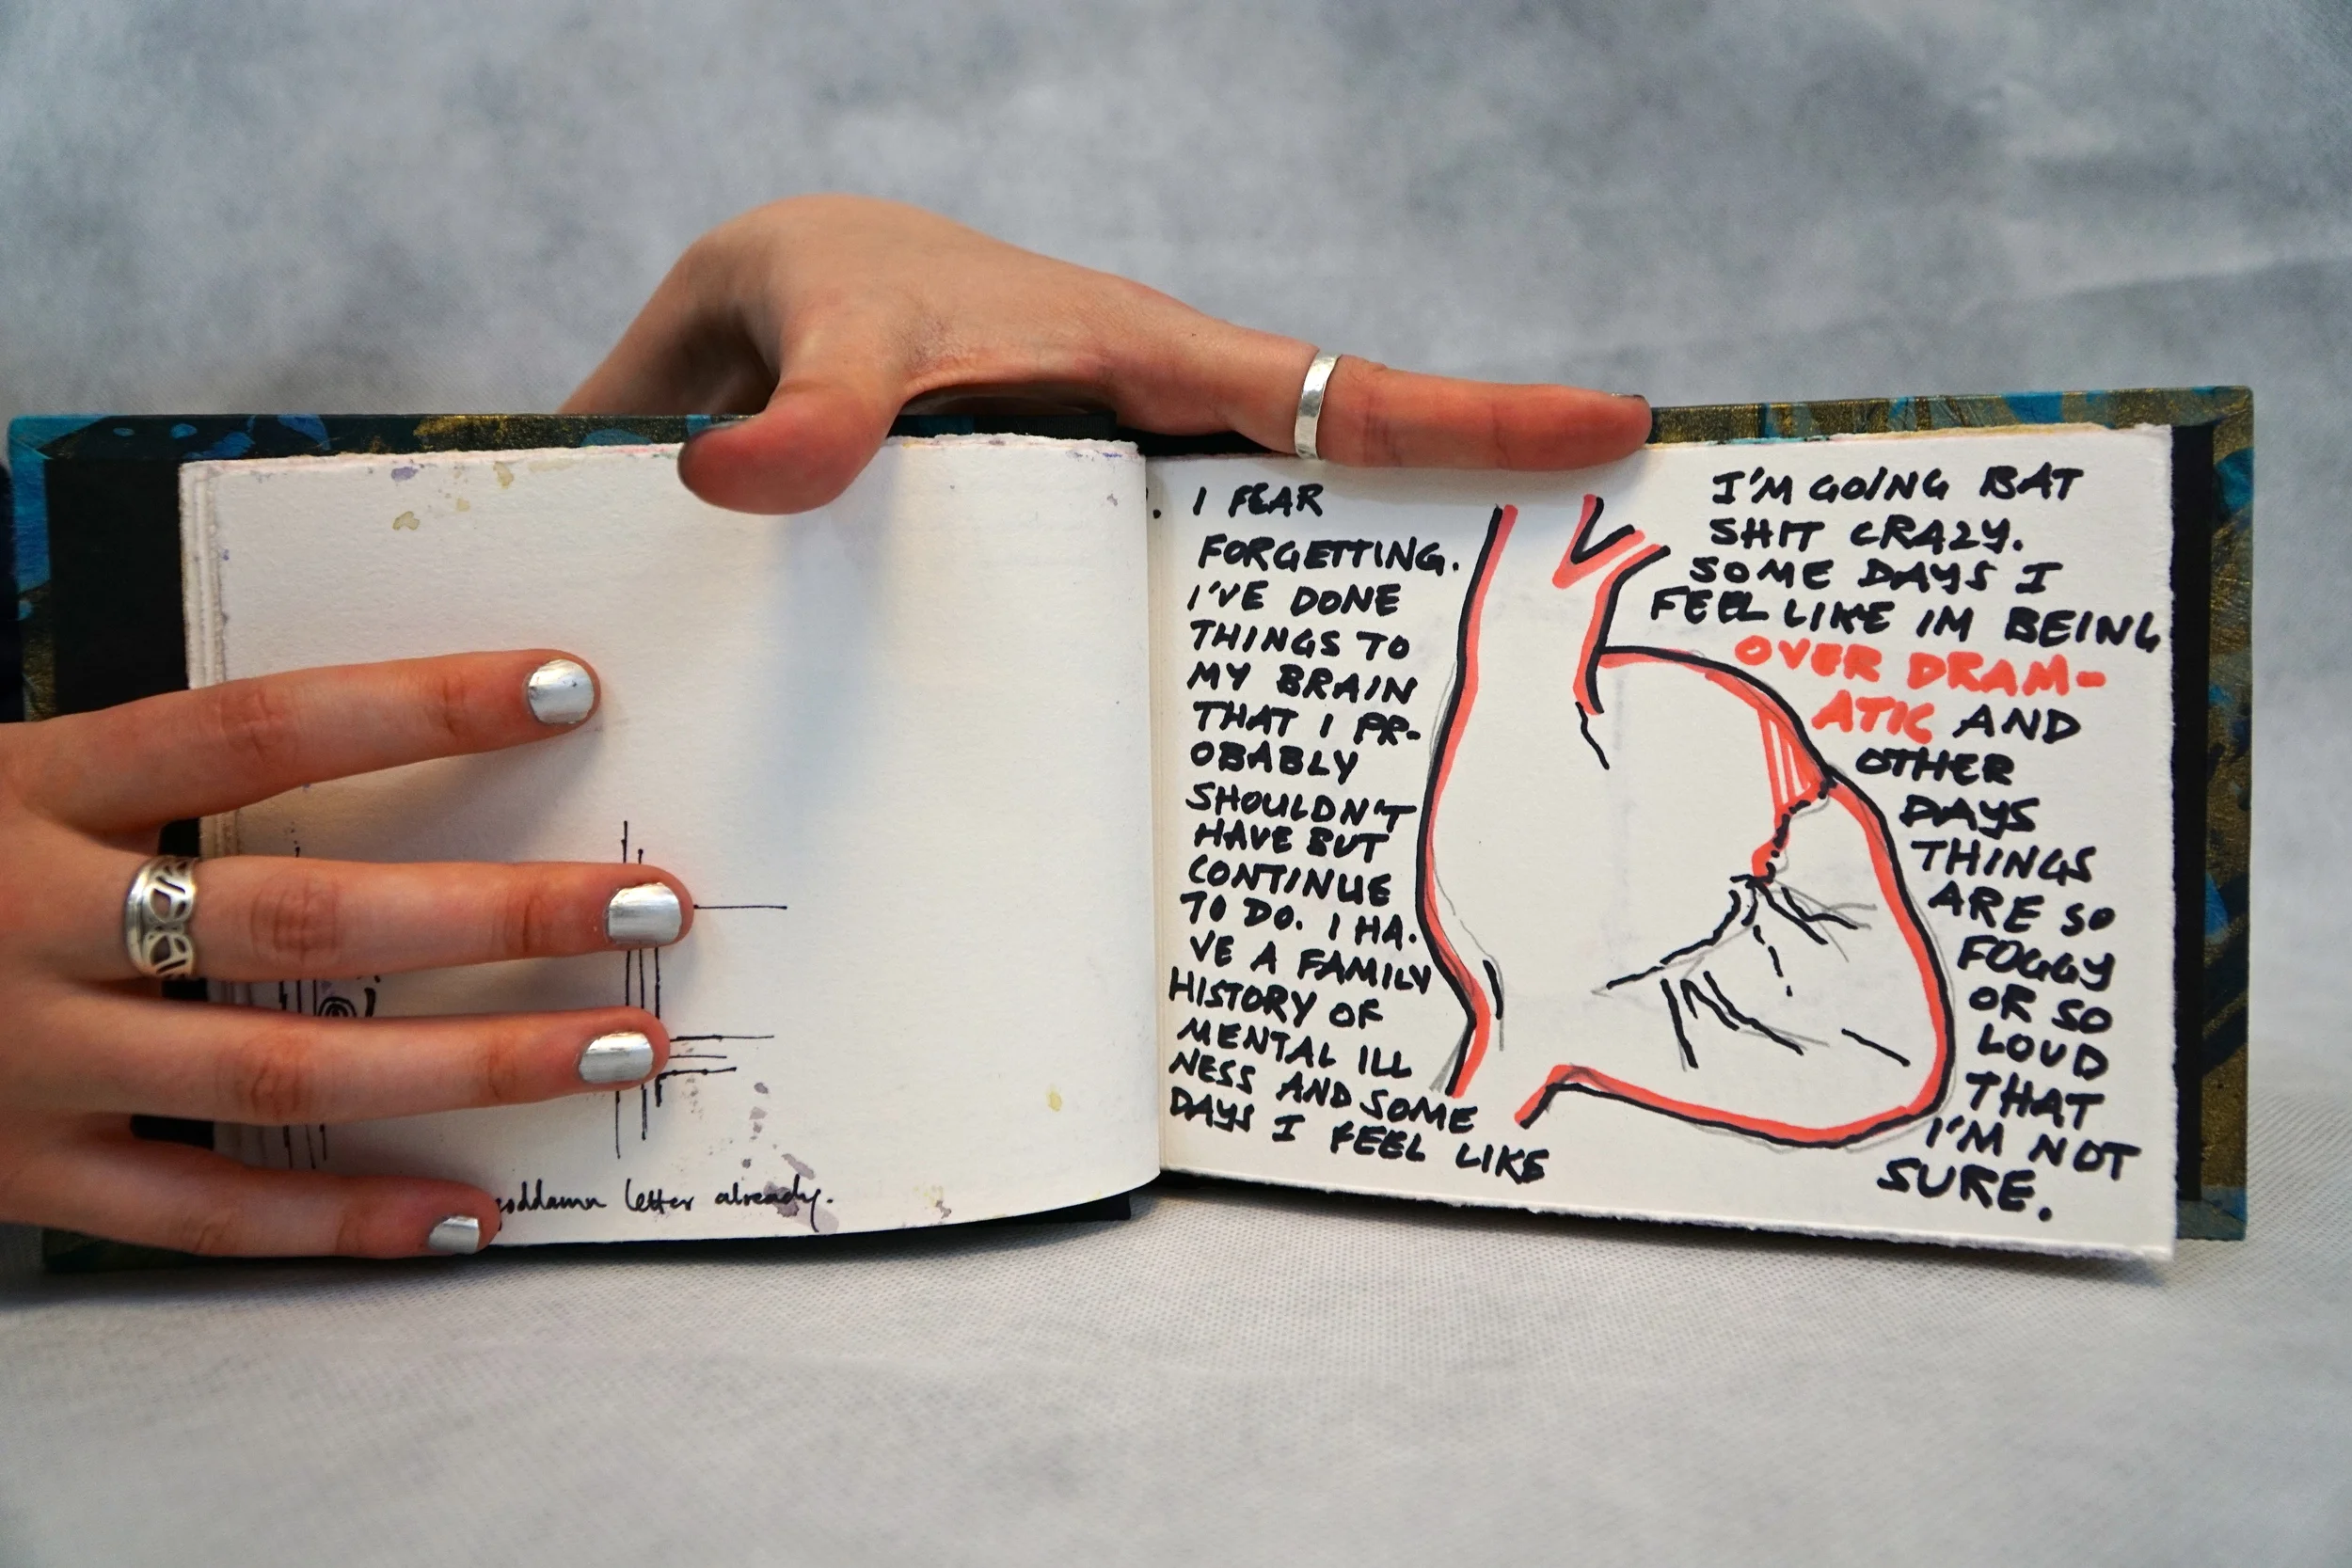 goddamn letter already.
I FEAR
FORGETTING.
I'VE DONE
THINGS TO
MY BRAIN
THAT I PR-
OBABLY
SHOULDN'T
HAVE BUT
CONTINUE
TO DO. I HA-
VE A FAMILY
HISTORY OF
MENTAL ILL
NESS AND SOME
DAYS I FEEL LIKE
I'M GOING BAT
SHIT CRAZY.
SOME DAYS I
FEEL LIKE IM BEING
OVER DRAM-
ATIC AND
OTHER
DAYS
THINGS
ARE SO
FOGGY
OR SO
LOUD
THAT
I'M NOT
SURE.